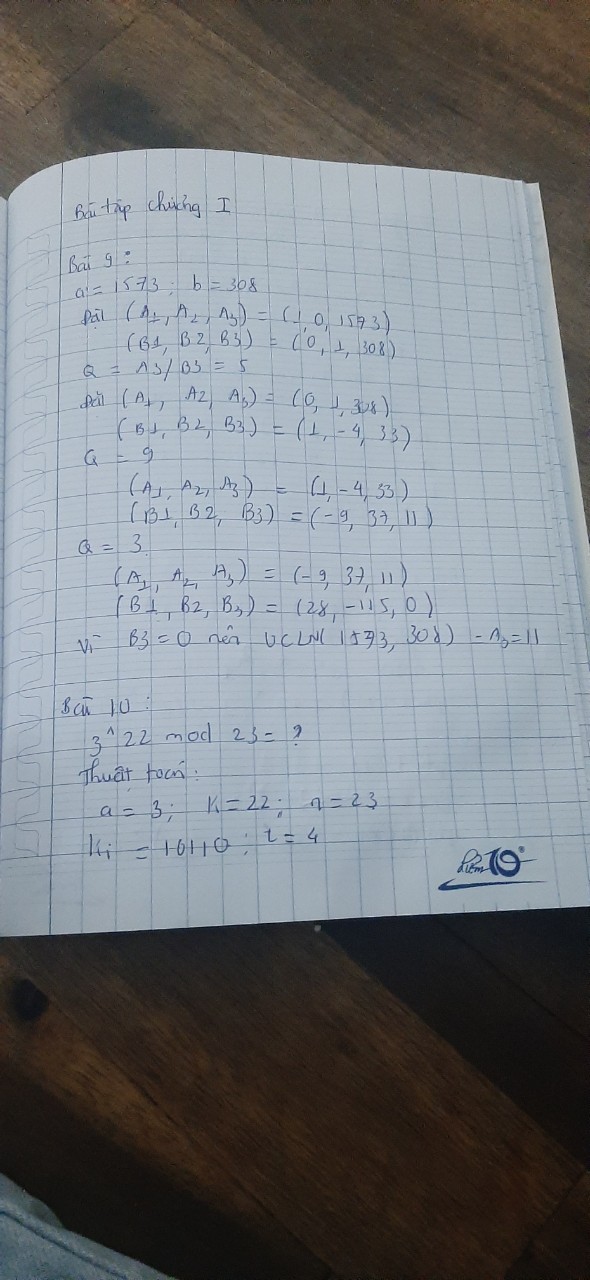 Bài tập chương I
Bài 9:
a = 1573; b = 308
Đặt (A1, A2, A3) = (1, 0, 1573)
(B1, B2, B3) = (0, 1, 308)
Q = A3/B3 = 5
Đặt (A1, A2, A3) = (0, 1, 308)
(B1, B2, B3) = (1, -4, 33)
Q = 9
(A1, A2, A3) = (1, -4, 33)
(B1, B2, B3) = (-9, 37, 11)
Q = 3
(A1, A2, A3) = (-9, 37, 11)
(B1, B2, B3) = (28, -115, 0)
Vì B3 = 0 nên UCLN(1573, 308) = A3 = 11
Bài 10:
3^22 mod 23 = ?
Thuật toán:
a = 3; K = 22; n = 23
Ki = 10110; i = 4
điểm 10